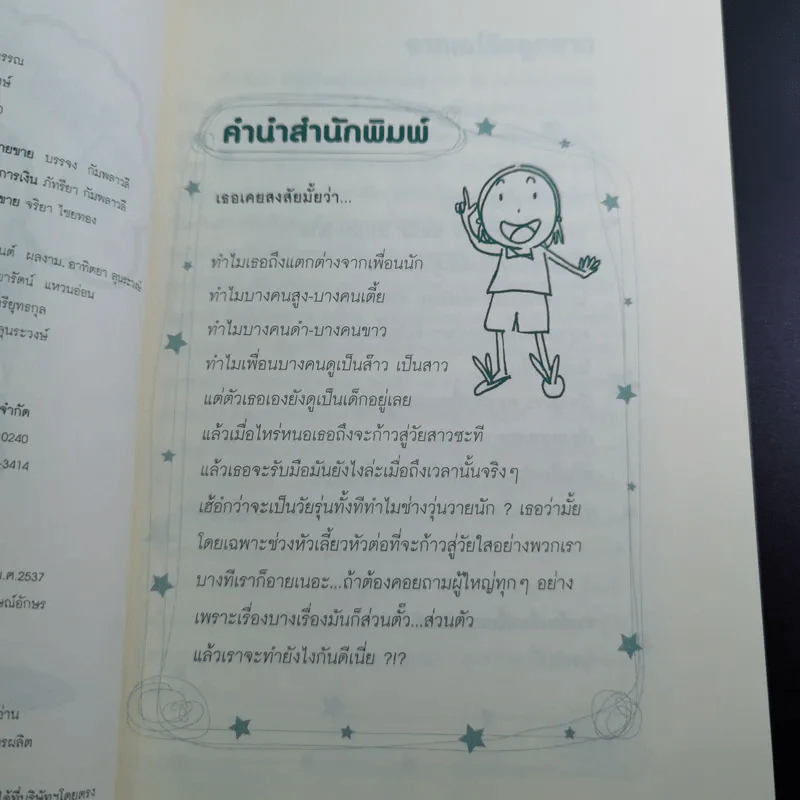 วรรณ
งษ์
ายขาย บรรจง กัมพลาวลี
การเงิน ภัทรียา กัมพลาวลี
ขาย จริยา ไชยทอง
นต์ ผลงาม. อาทิตยา คุนะวงษ์
ยารัตน์ แหวนอ่อน
รียุทธกุล
คุนระวงษ์
จำกัด
10240
-3414
พ.ศ.2537
ษณ์อักษร
อ่าน
รผลิต
ได้ที่บริษัทฯโดยตรง
คำนำสำนักพิมพ์
เธอเคยสงสัยมั้ยว่า...
ทำไมเธอถึงแตกต่างจากเพื่อนนัก
ทำไมบางคนสูง-บางคนเตี้ย
ทำไมบางคนดำ-บางคนขาว
ทำไมเพื่อนบางคนดูเป็นส๊าว เป็นสาว
แต่ตัวเธอเองยังดูเป็นเด็กอยู่เลย
แล้วเมื่อไหร่หนอเธอถึงจะก้าวสู่วัยสาวซะที
แล้วเธอจะรับมือมันยังไงล่ะเมื่อถึงเวลานั้นจริงๆ
เฮ้อกว่าจะเป็นวัยรุ่นทั้งทีทำไมช่างวุ่นวายนัก ? เธอว่ามั้ย
โดยเฉพาะช่วงหัวเลี้ยวหัวต่อที่จะก้าวสู่วัยใสอย่างพวกเรา
บางทีเราก็อายเนอะ...ถ้าต้องคอยถามผู้ใหญ่ทุกๆ อย่าง
เพราะเรื่องบางเรื่องมันก็ส่วนตั๊ว...ส่วนตัว
แล้วเราจะทำยังไงกันดีเนี่ย ?!?